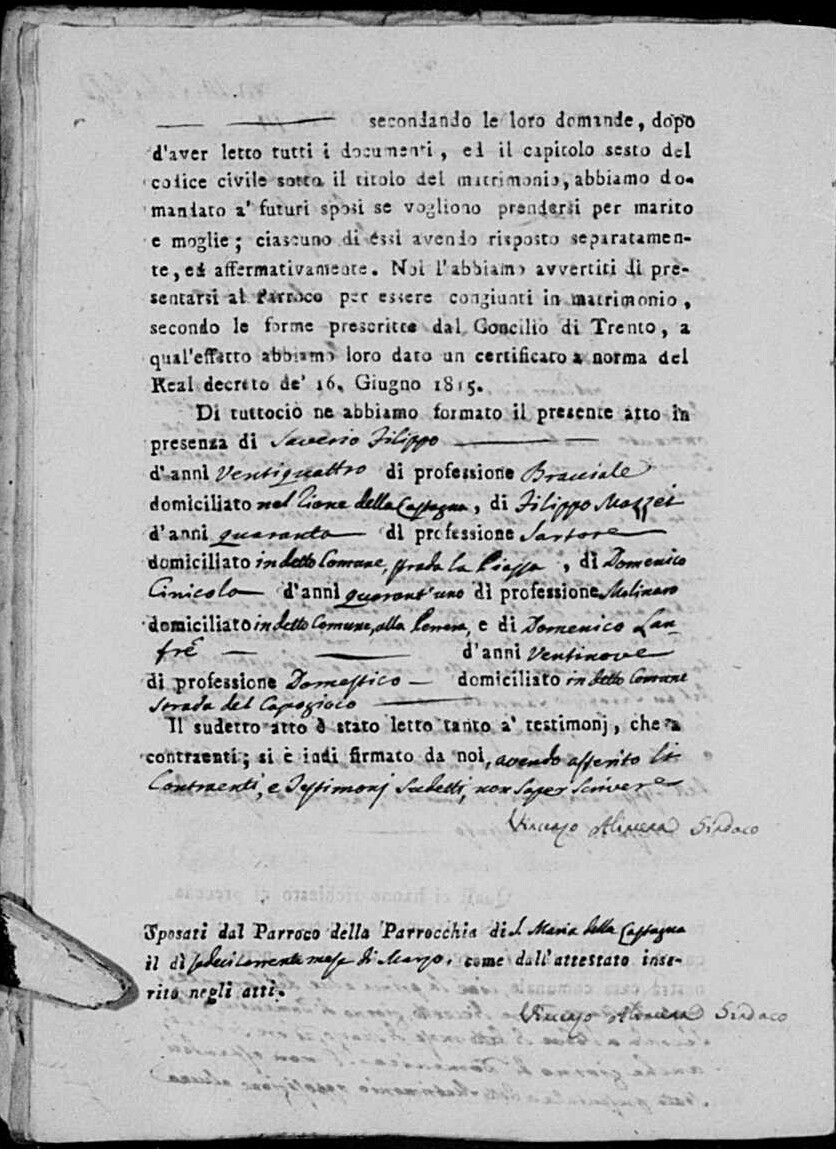 secondando le loro domande, dopo
d'aver letto tutti i documenti, ed il capitolo sesto del
codice civile sotto il titolo del matrimonio, abbiamo do-
mandato a' futuri sposi se vogliono prendersi per marito
e moglie; ciascuno di essi avendo risposto separatamen-
te, ed affermativamente. Noi l'abbiamo avvertiti di pre-
sentarsi al Parroco per essere congiunti in matrimonio,
secondo le forme prescritte dal Concilio di Trento, a
qual'effetto abbiamo loro dato un certificato a norma del
Real decreto de' 16. Giugno 1815.
Di tuttociò ne abbiamo formato il presente atto in
presenza di Saverio Filippo
d'anni ventiquattro di professione Bracciale
domiciliato nel Rione della Castagna, di Filippo Mazzei
d'anni quaranta di professione Sartore
domiciliato in detto Comune, strada la Piazza, di Domenico
Cinicola d'anni quarant'uno di professione Molinaro
domiciliato in detto Comune, alla, e di Domenico Lan-
frè d'anni ventinove
di professione Domestico domiciliato in detto Comune
Strada del Capogioco
Il sudetto atto è stato letto tanto a' testimonj, che a
contraenti; si è indi firmato da noi, avendo asserito li
Contraenti, e Testimonj Sudetti, non saper Scrivere
Vincenzo Sindaco
Sposati dal Parroco della Parrocchia di S. Maria della Castagna
il dì sedeci corrente mese di Marzo, come dall'attestato inse-
rito negli atti.
Vincenzo Sindaco